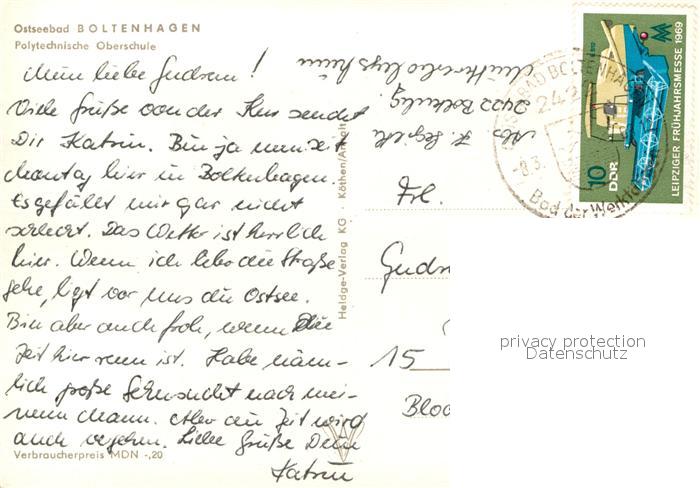 Ostseebad BOLTENHAGEN
Polytechnische Oberschule
Meine liebe Gudrun!
Viele Grüße von der Kur sendet
Dir Katrin. Bin ja nun seit
Montag hier in Boltenhagen.
Es gefällt mir gar nicht
schlecht. Das Wetter ist herrlich
hier. Wenn ich über die Straße
gehe, liegt vor uns die Ostsee.
Bin aber auch froh, wenn die
Zeit hier rum ist. Habe näm-
lich große Sehnsucht nach mei-
nem Mann. Aber die Zeit wird
auch vergehen. Liebe Grüße Deine
Katrin
Verbraucherpreis MDN -,20
Heldge-Verlag KG · Köthen/Anhalt
Abs. K.
2422 Boltenhg.
Frl.
Gudr
15
Bloc
OSTSEEBAD BOLTENHAGEN
242
-8.3.
Bad der Werktätigen
10
DDR
LEIPZIGER FRÜHJAHRSMESSE 1969
privacy protection
Datenschutz